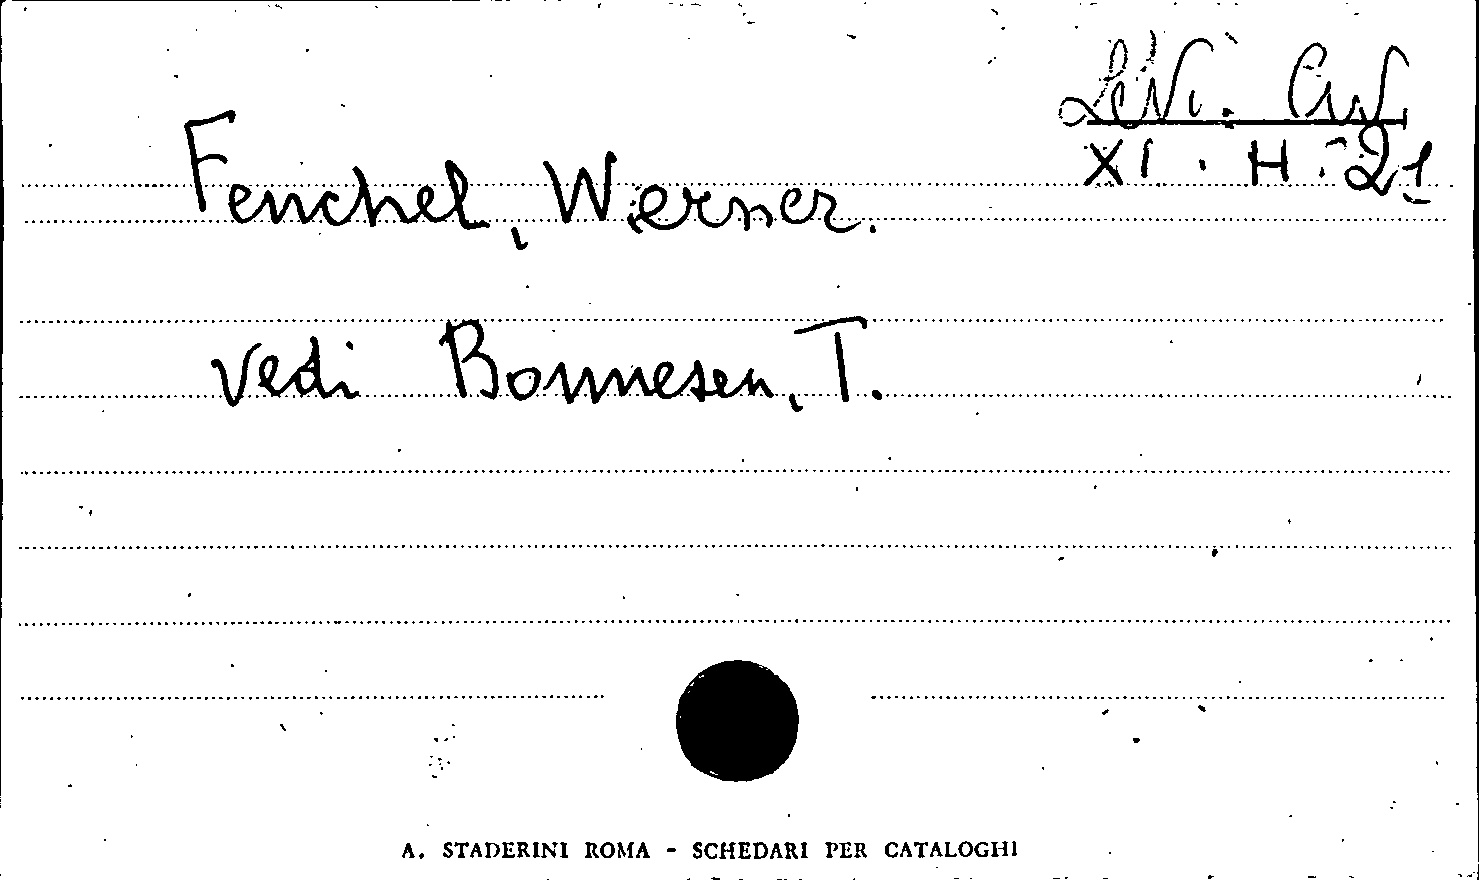 Levi. Civ.
XI. H. 21
Fenchel, Werner.
vedi Bonnesen, T.
A. STADERINI ROMA - SCHEDARI PER CATALOGHI